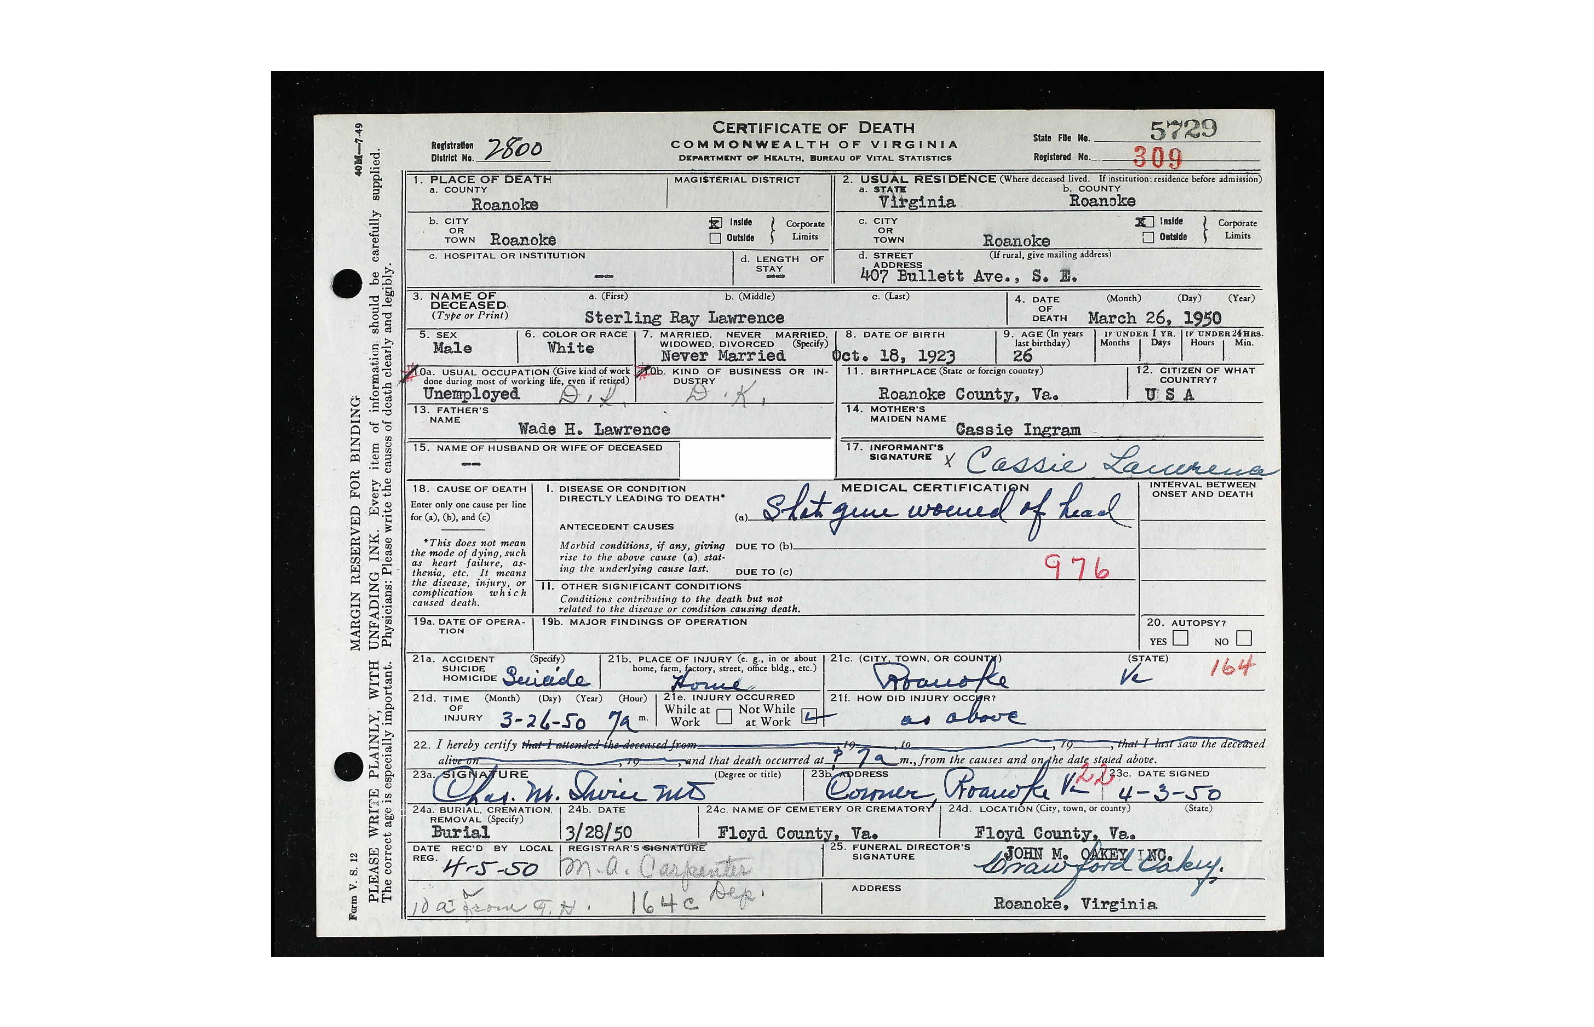 CERTIFICATE OF DEATH
COMMONWEALTH OF VIRGINIA
DEPARTMENT OF HEALTH, BUREAU OF VITAL STATISTICS
Registration District No. 2800
State File No. 5729
Registered No. 309
40M—7-49
MARGIN RESERVED FOR BINDING
PLEASE WRITE PLAINLY, WITH UNFADING INK. Every item of information should be carefully supplied.
The correct age is especially important. Physicians: Please write the causes of death clearly and legibly.
Form V. S. 12
1. PLACE OF DEATH
a. COUNTY
Roanoke
MAGISTERIAL DISTRICT
2. USUAL RESIDENCE (Where deceased lived. If institution: residence before admission)
a. STATE
Virginia
b. COUNTY
Roanoke
b. CITY OR TOWN Roanoke
Inside
Outside
Corporate Limits
c. CITY OR TOWN Roanoke
Inside
Outside
Corporate Limits
c. HOSPITAL OR INSTITUTION
—
d. LENGTH OF STAY
—
d. STREET ADDRESS (If rural, give mailing address)
407 Bullett Ave., S. E.
3. NAME OF DECEASED (Type or Print)
a. (First) b. (Middle) c. (Last)
Sterling Ray Lawrence
4. DATE OF DEATH (Month) (Day) (Year)
March 26, 1950
5. SEX
Male
6. COLOR OR RACE
White
7. MARRIED, NEVER MARRIED, WIDOWED, DIVORCED (Specify)
Never Married
8. DATE OF BIRTH
Oct. 18, 1923
9. AGE (In years last birthday)
26
IF UNDER 1 YR. Months Days
IF UNDER 24 HRS. Hours Min.
10a. USUAL OCCUPATION (Give kind of work done during most of working life, even if retired)
Unemployed D.K.
10b. KIND OF BUSINESS OR INDUSTRY
D.K.
11. BIRTHPLACE (State or foreign country)
Roanoke County, Va.
12. CITIZEN OF WHAT COUNTRY?
U S A
13. FATHER'S NAME
Wade H. Lawrence
14. MOTHER'S MAIDEN NAME
Cassie Ingram
15. NAME OF HUSBAND OR WIFE OF DECEASED
—
17. INFORMANT'S SIGNATURE X Cassie Lawrence
18. CAUSE OF DEATH
Enter only one cause per line for (a), (b), and (c)
*This does not mean the mode of dying, such as heart failure, asthenia, etc. It means the disease, injury, or complication which caused death.
MEDICAL CERTIFICATION
INTERVAL BETWEEN ONSET AND DEATH
I. DISEASE OR CONDITION DIRECTLY LEADING TO DEATH*
(a) Shot gun wound of head
ANTECEDENT CAUSES
Morbid conditions, if any, giving rise to the above cause (a) stating the underlying cause last.
DUE TO (b)
DUE TO (c)
976
II. OTHER SIGNIFICANT CONDITIONS
Conditions contributing to the death but not related to the disease or condition causing death.
19a. DATE OF OPERATION
19b. MAJOR FINDINGS OF OPERATION
20. AUTOPSY?
YES NO
21a. ACCIDENT SUICIDE HOMICIDE (Specify)
Suicide
21b. PLACE OF INJURY (e. g., in or about home, farm, factory, street, office bldg., etc.)
Home
21c. (CITY, TOWN, OR COUNTY) (STATE)
Roanoke Va
164
21d. TIME OF INJURY (Month) (Day) (Year) (Hour)
3-26-50 7a m.
21e. INJURY OCCURRED
While at Work
Not While at Work
21f. HOW DID INJURY OCCUR?
as above
22. I hereby certify that I attended the deceased from 19 , to , 19 , that I last saw the deceased
alive on , 19 , and that death occurred at 7a m., from the causes and on the date stated above.
23a. SIGNATURE (Degree or title)
Chas. M. Irvin MD
23b. ADDRESS
Coroner, Roanoke Va
22
23c. DATE SIGNED
4-3-50
24a. BURIAL, CREMATION, REMOVAL (Specify)
Burial
24b. DATE
3/28/50
24c. NAME OF CEMETERY OR CREMATORY
Floyd County, Va.
24d. LOCATION (City, town, or county) (State)
Floyd County, Va.
DATE REC'D BY LOCAL REG. 4-5-50
REGISTRAR'S SIGNATURE
M.A. Carpenter
Dep.
25. FUNERAL DIRECTOR'S SIGNATURE
JOHN M. OAKEY INC.
Crawford Oakey.
ADDRESS
Roanoke, Virginia
10a from F.H. 164c